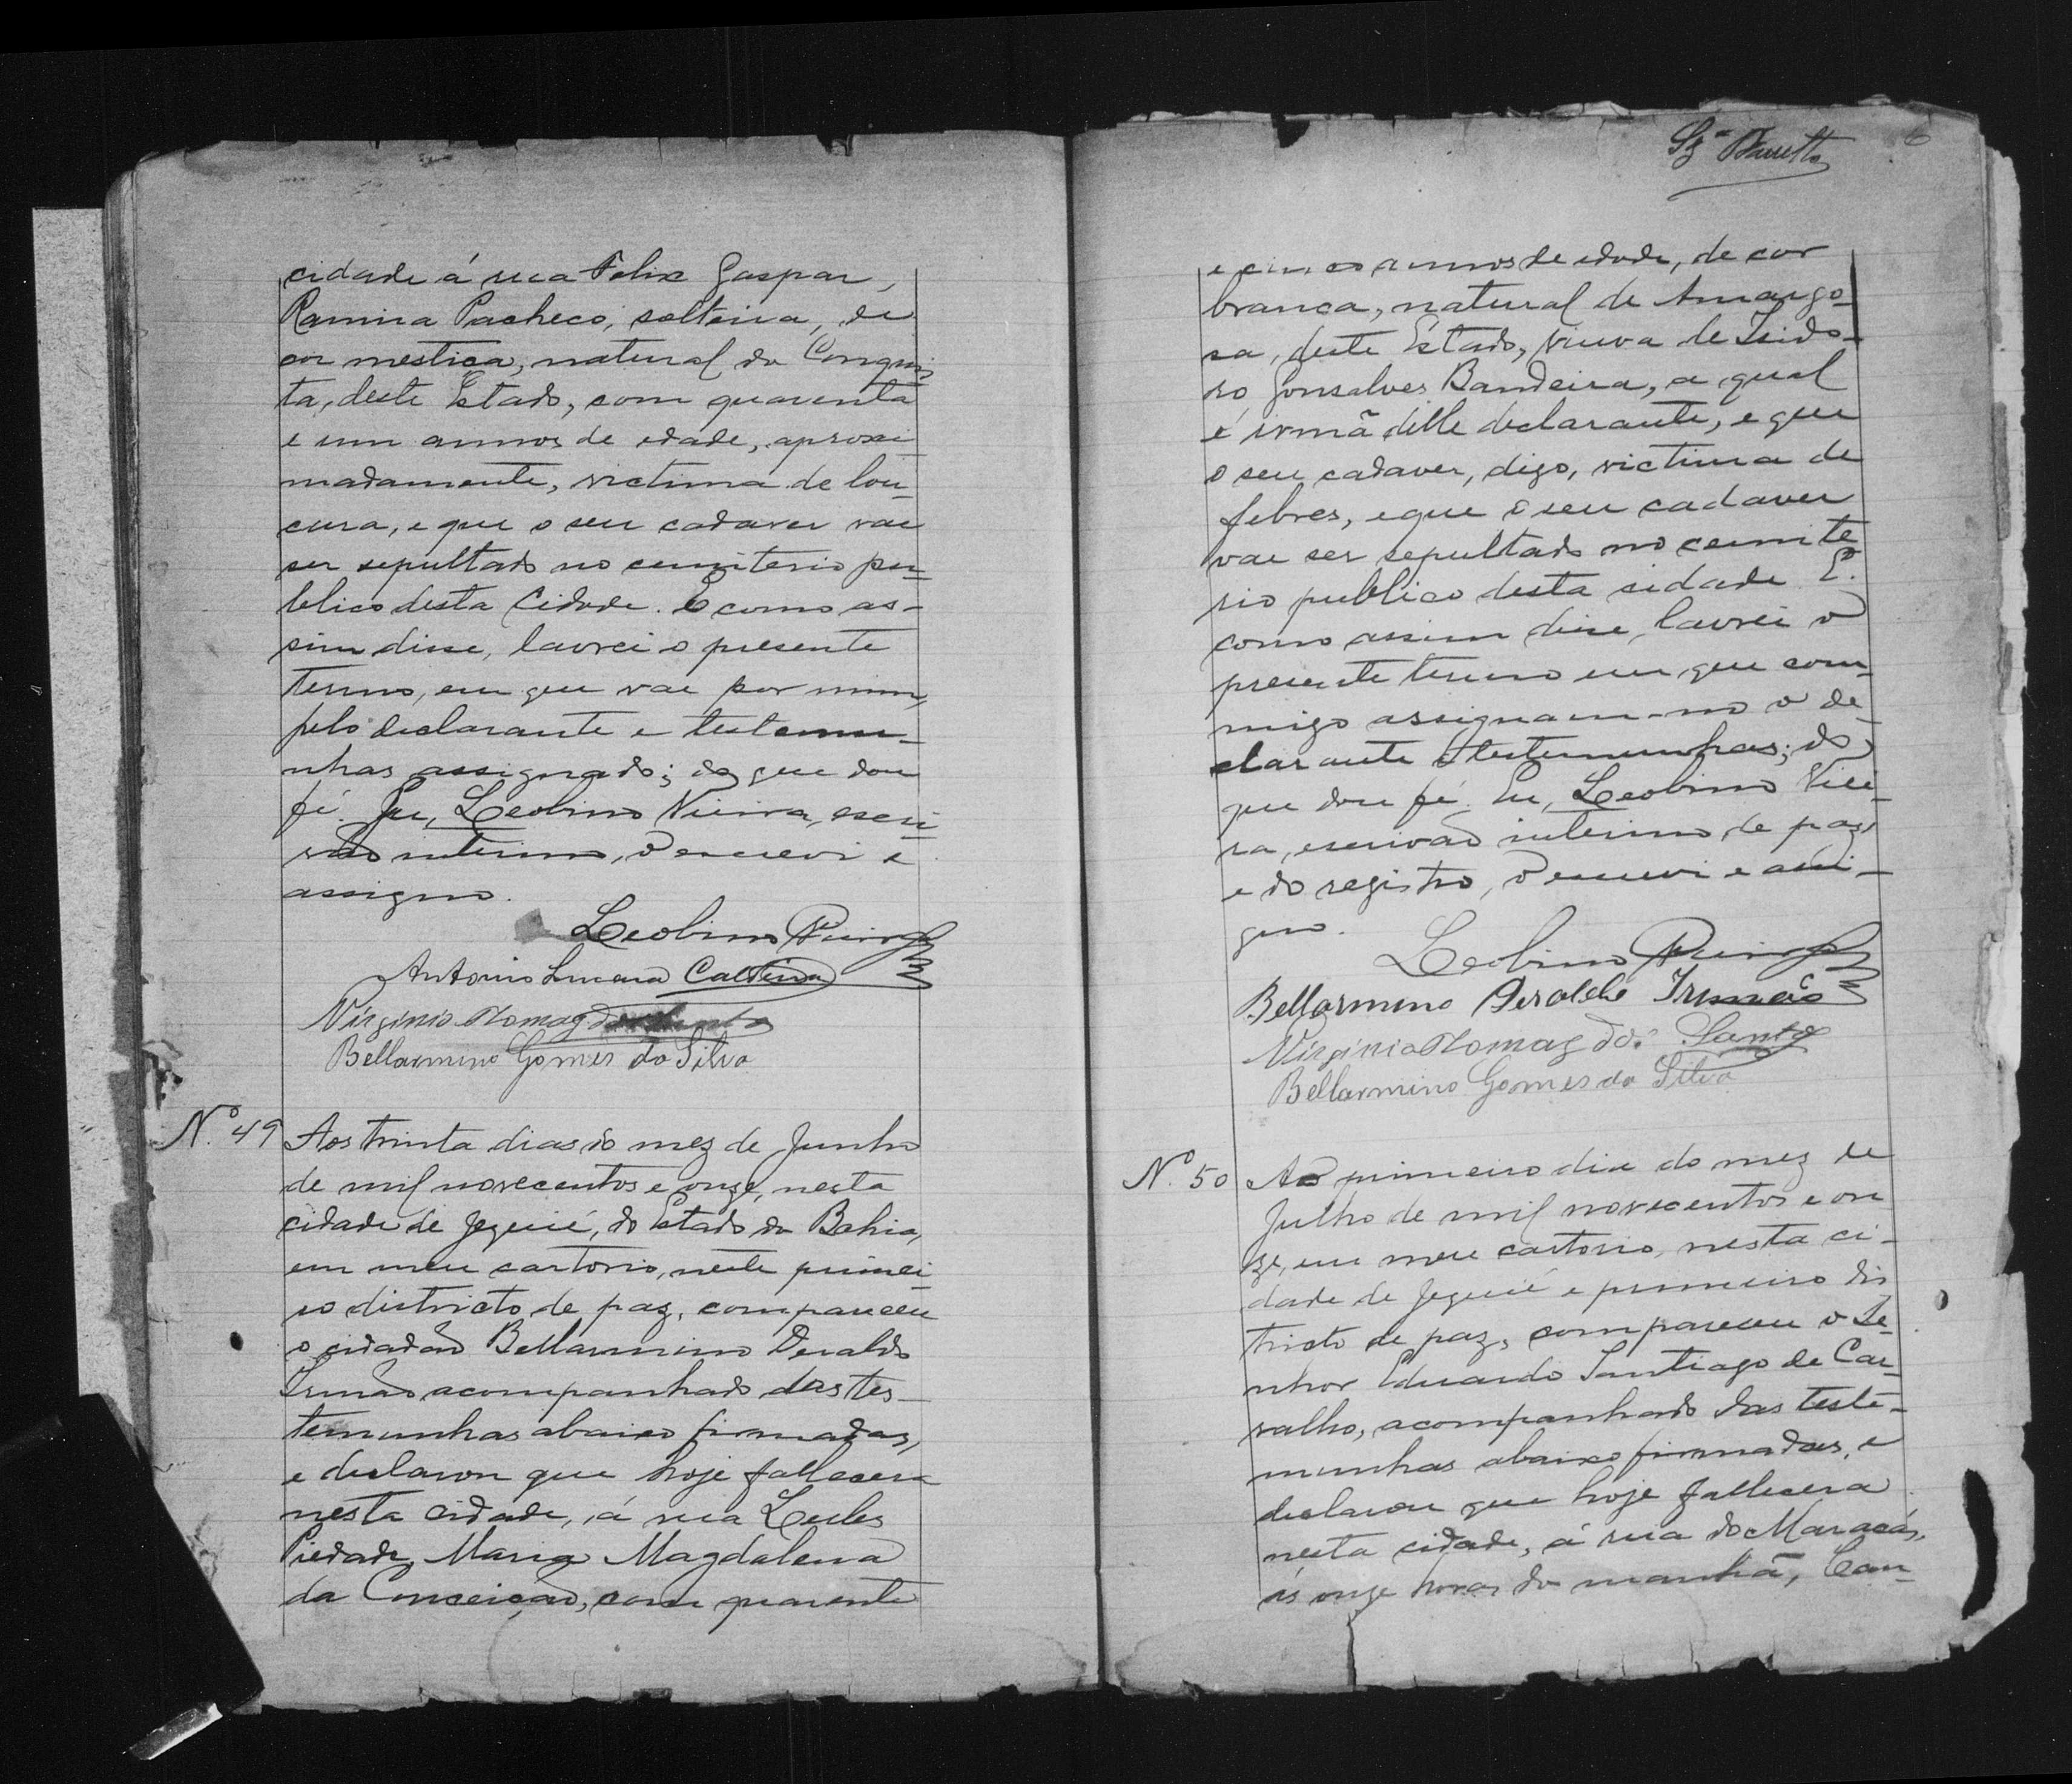 cidade á rua Felix Gaspar,
Ramira Pacheco, solteira, de
cor mestiça, natural da Conquis-
ta, deste Estado, com quarenta
e um annos de edade, aproxi
madamente, victima de lou-
cura, e que o seu cadaver vae
ser sepultado no cemiterio pu-
blico desta Cidade. E como as-
sim disse, lavrei o presente
termo, em que vae por mim,
pelo declarante e testemu-
nhas assignado; do que dou
fé. Eu, Leobino Vieira, escri
vão interino, o escrevi e
assigno.
Leobino Vieira
Antonio Lucena Caldeira
Virginio Thomaz dos Santos
Bellarmino Gomes da Silva
Nº. 49 Aos trinta dias do mez de Junho
de mil novecentos e onze, nesta
cidade de Jequié, do Estado da Bahia,
em meu cartorio, neste primei-
ro districto de paz, compareceu
o cidadão Bellarmino Deraldo
Irmão acompanhado das tes-
temunhas abaixo firmadas,
e declarou que hoje fallecera
nesta cidade, á rua
Piedade, Maria Magdalena
da Conceição, com quarenta
6
e cinco annos de edade, de cor
branca, natural de Amargo-
sa, deste Estado, viuva de Isido-
ro Gonsalves Bandeira, a qual
é irmã delle declarante, e que
o seu cadaver, digo, victima de
febres, e que o seu cadaver
vae ser sepultado no cemite
rio publico desta cidade. E
como assim disse, lavrei o
presente termo em que com-
migo assignam-no o de-
clarante e testemunhas; do
que dou fé. Eu, Leobino Viei-
ra, escrivão interino de paz
e do registro, o escrevi e assi-
gno.
Leobino Vieira
Bellarmino Deraldo Irmão
Virginio Thomaz dos Santos
Bellarmino Gomes da Silva
Nº. 50 Ao primeiro dia do mez de
Julho de mil novecentos e on
ze, em meu cartorio, nesta ci-
dade de Jequié e primeiro dis
tricto de paz, compareceu o Se-
nhor Eduardo Santiago de Car-
valho, acompanhado das teste-
munhas abaixo firmadas, e
declarou que hoje fallecera
nesta cidade, á rua do Maracás,
ás onze horas da manhã, Can-